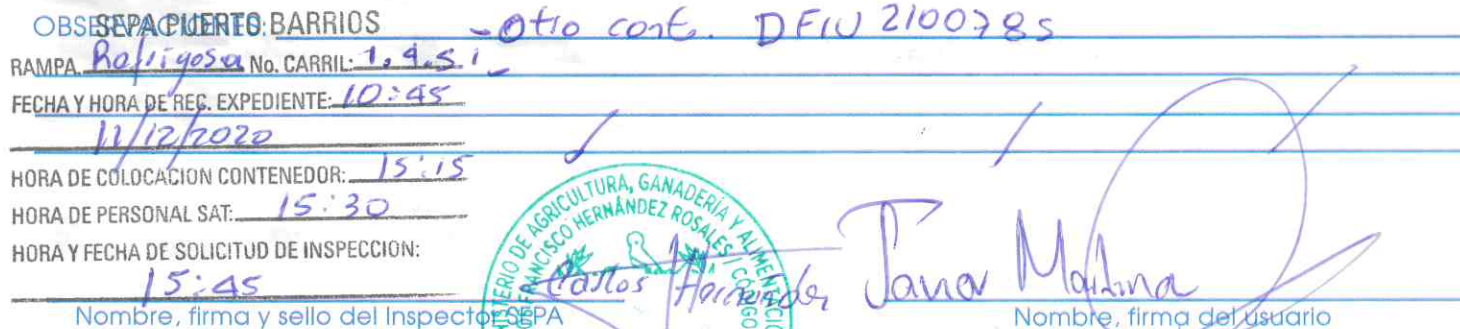 OBSERVACIONES: SEPA PUERTO BARRIOS - Otro cont. DFIU 2100785
RAMPA. No. CARRIL: 1.4.5.1
FECHA Y HORA DE REC. EXPEDIENTE: 10:45
11/12/2020
HORA DE COLOCACION CONTENEDOR: 15:15
HORA DE PERSONAL SAT: 15:30
HORA Y FECHA DE SOLICITUD DE INSPECCION:
15:45
MINISTERIO DE AGRICULTURA, GANADERÍA Y ALIMENTACIÓN
FRANCISCO HERNÁNDEZ ROSALES
Carlos Hernández
Nombre, firma y sello del Inspector SEPA
Nombre, firma del usuario